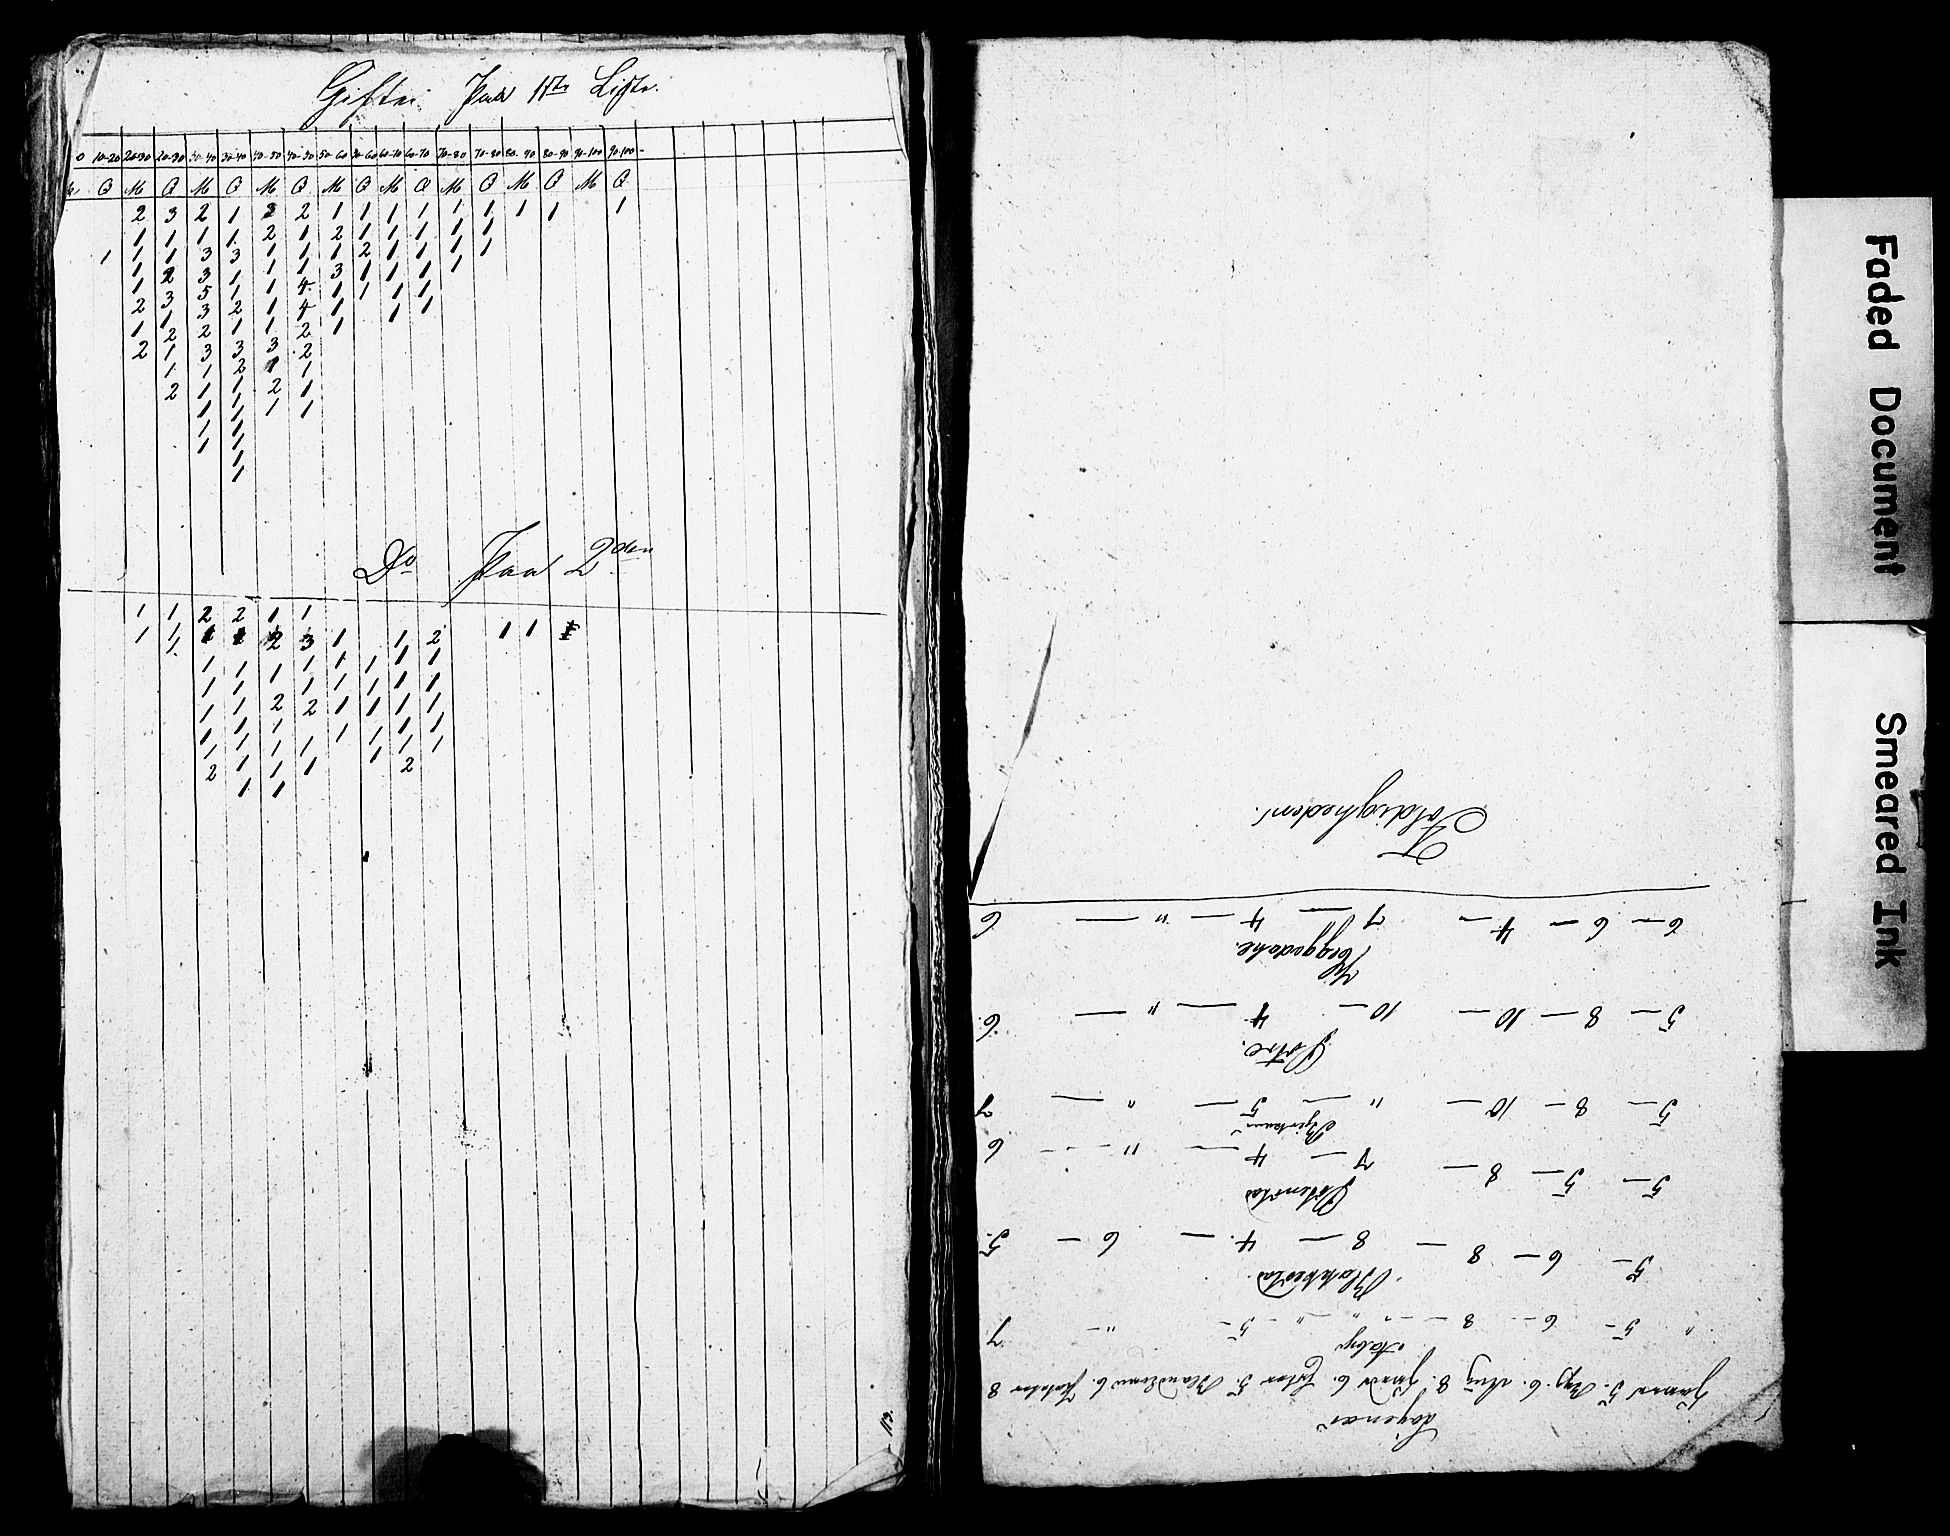 Gifte Paa 1ste Liste.
0 10-20 20-30 20-30 30-40 30-40 40-50 40-50 50-60 50-60 60-70 60-70 70-80 70-80 80-90 80-90 90-100 90-100
Q M Q M Q M Q M Q M Q M Q M Q M Q
2 3 2 1 2 2 1 1 1 1 1 1 1 1 1
1 1 1 1 2 1 2 1 1 1 1 1
1 1 1 3 3 1 1 1 2 1 1 1 1
1 2 3 1 1 1 3 1 1 1 1
1 3 5 1 1 4 1 1 1 1
2 1 3 2 1 4 1 1 1
1 2 2 1 1 2 1
2 1 3 3 3 2
1 1 2 1 1
2 1 1 2 1
1 1 1 1
1 1
1 1
1
Do Paa 2den
1 1 2 2 1 1
1 1 1 1 2 3 1 1 2 1 1
1 1 1 1 1 1 1 1
1 1 1 1 1 1 1
1 1 2 2 1 1 1 1
1 1 1 1 1 1 1
1 1 1 1 1 1 1
2 1 1 1 2
1 1
113.
Løgenæs
5. Byg. 6. Rug 8. 6. 5. Blandkorn 6. 8
" 5 - 6 - 8 - " - " - 5 - " - 7
5 - 6 - 8 - 8 - 4 - 6 - 5.
5 - 5 - 8 - 7 - 4 - " - 6
5 - 8 - 10 - " - 5 - " - 7
5 - 8 - 10 - 10 - 4 - " - 6.
Heggedahl.
6 - 6 - 4 - 7 - 4 - " - 6
Foldigheden.
Faded Document
Smeared Ink